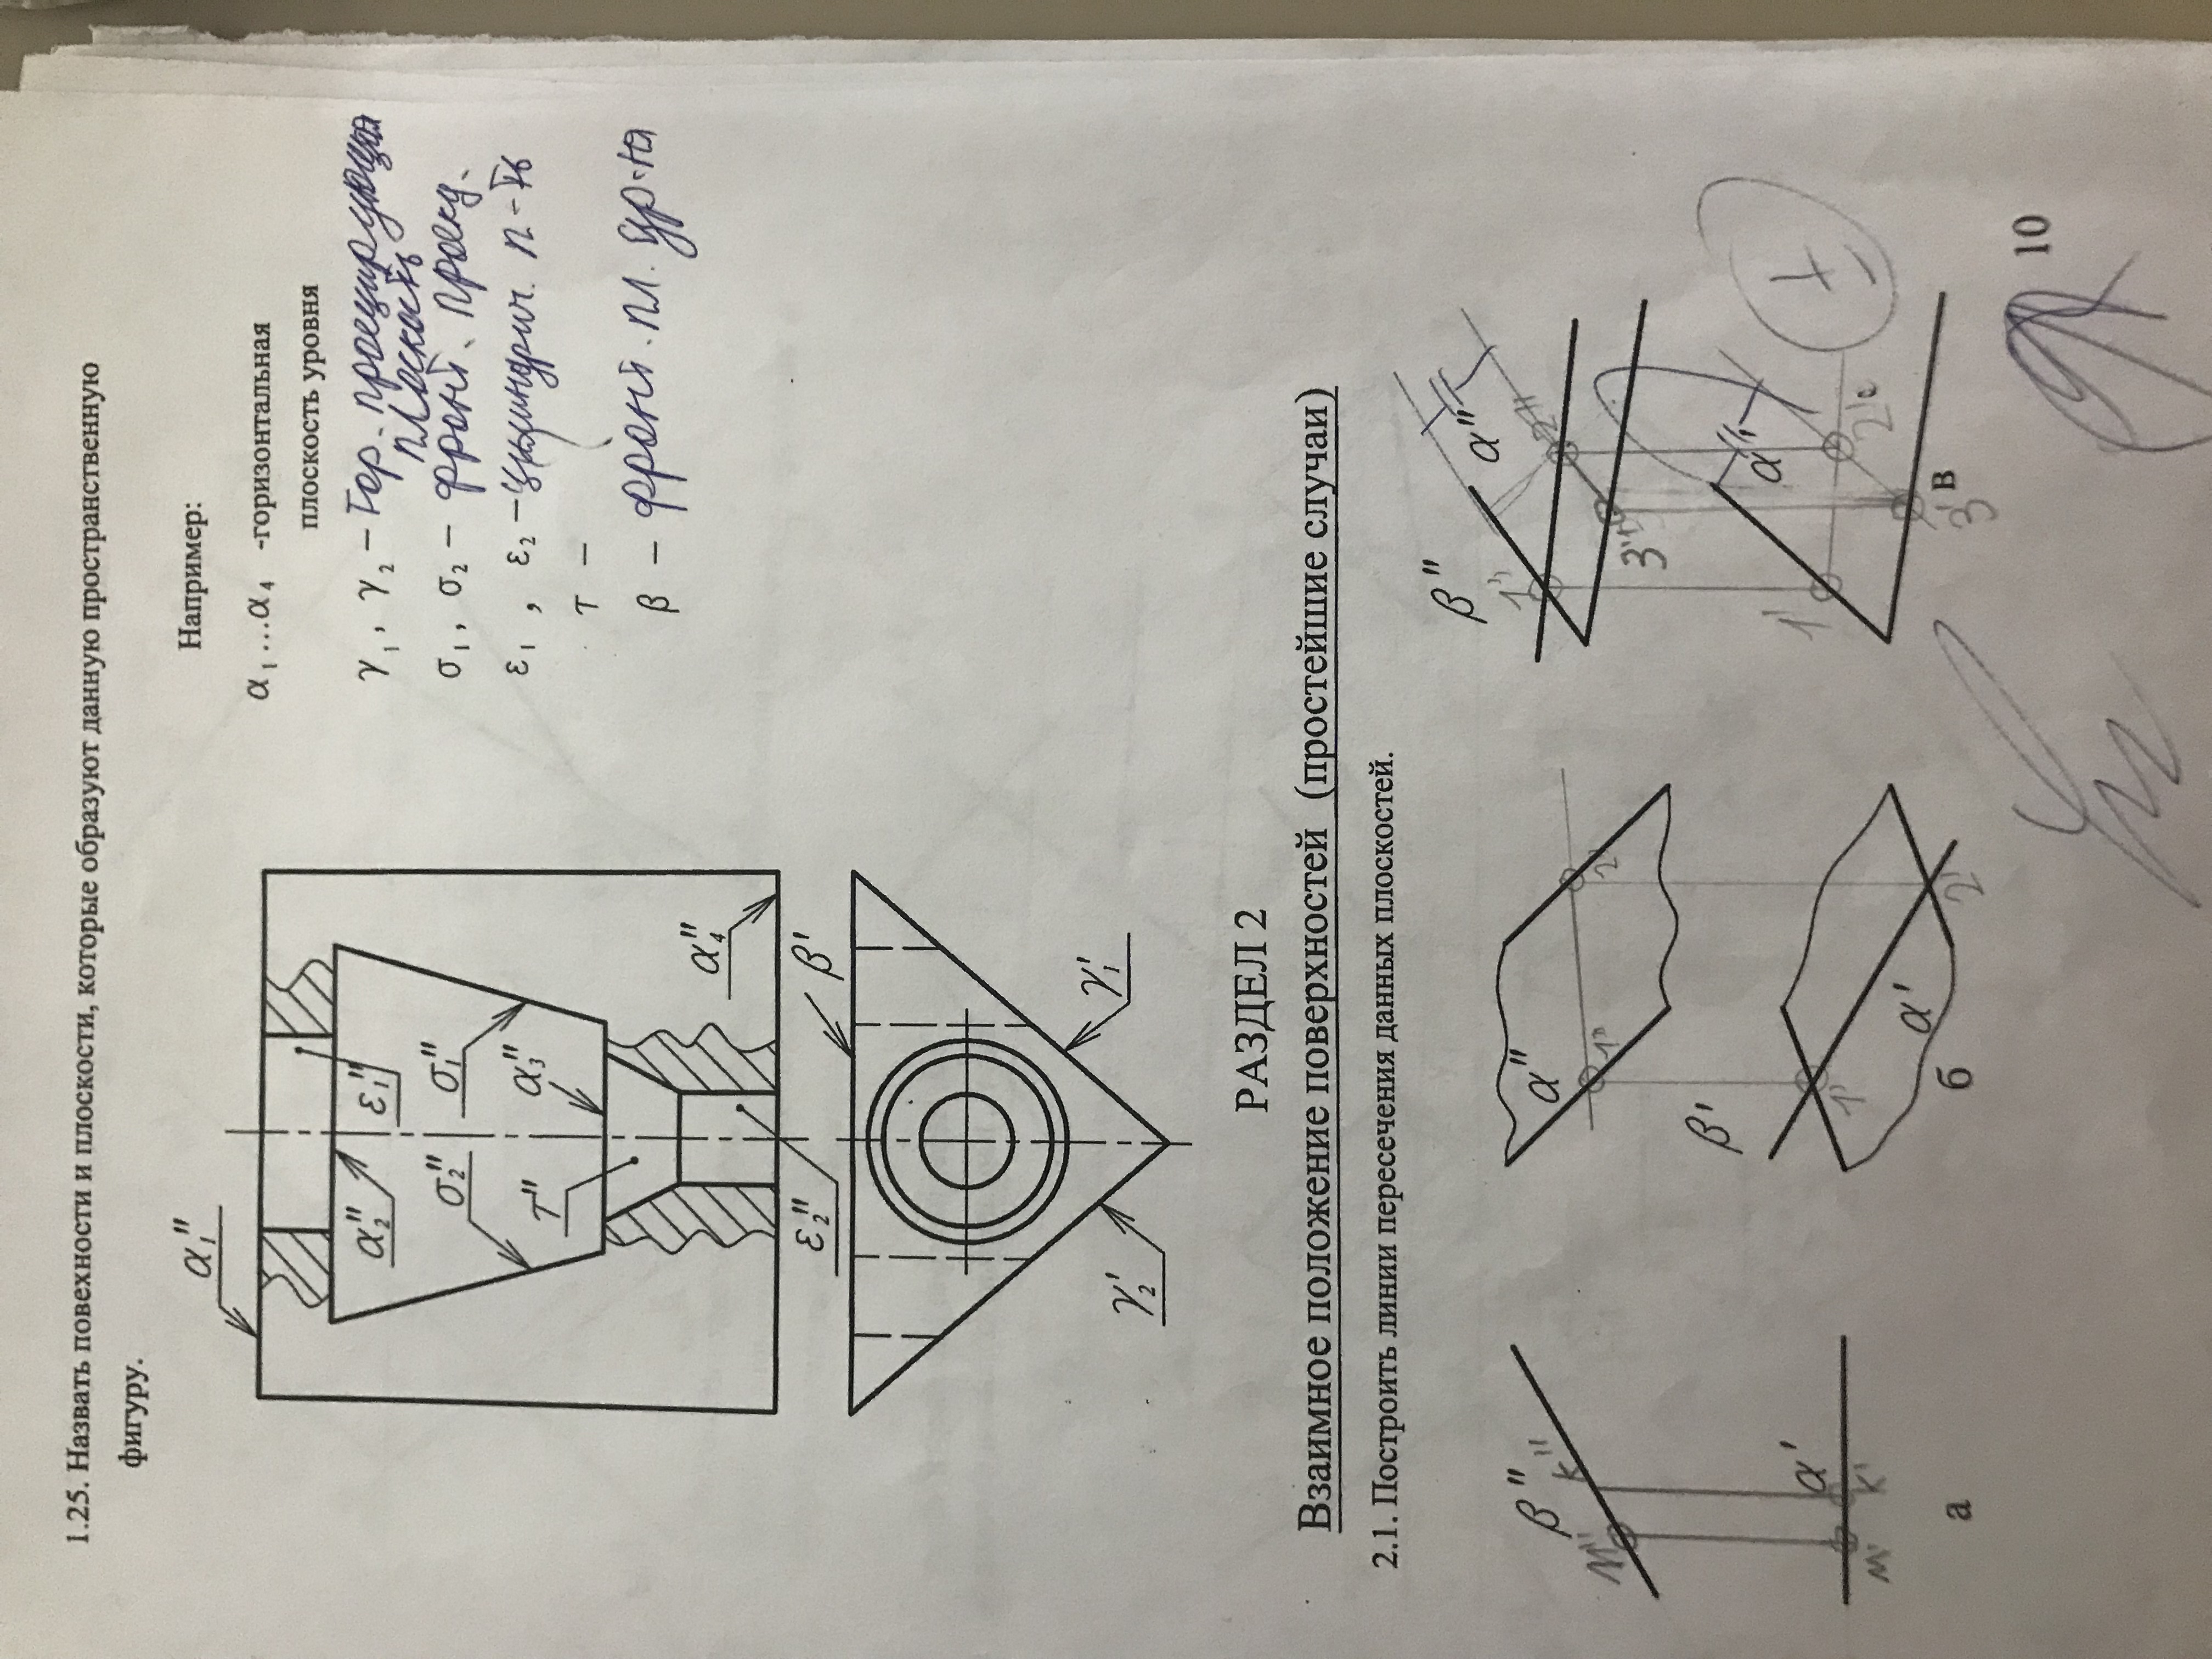 1.25. Назвать повехности и плоскости, которые образуют данную пространственную
фигуру.
Например:
α₁...α₄ -горизонтальная
плоскость уровня
γ₁, γ₂ – Гор. проецирующая
плоскость
σ₁, σ₂ – фронт. проец.
ε₁, ε₂ – цилиндрич. п-ть
τ –
β – фронт. пл. ур-ня
α₁"
α₂" ε₁"
σ₂" σ₁"
τ" α₃"
α₄"
ε₂" β'
γ₂' γ₁'
РАЗДЕЛ 2
Взаимное положение поверхностей (простейшие случаи)
2.1. Построить линии пересечения данных плоскостей.
β" M" K"
α'
M' K'
а
α"
1" 2"
β'
1' α' 2'
б
β" α"
1" 2"
3"
α"
1' 2'
3'
в
10